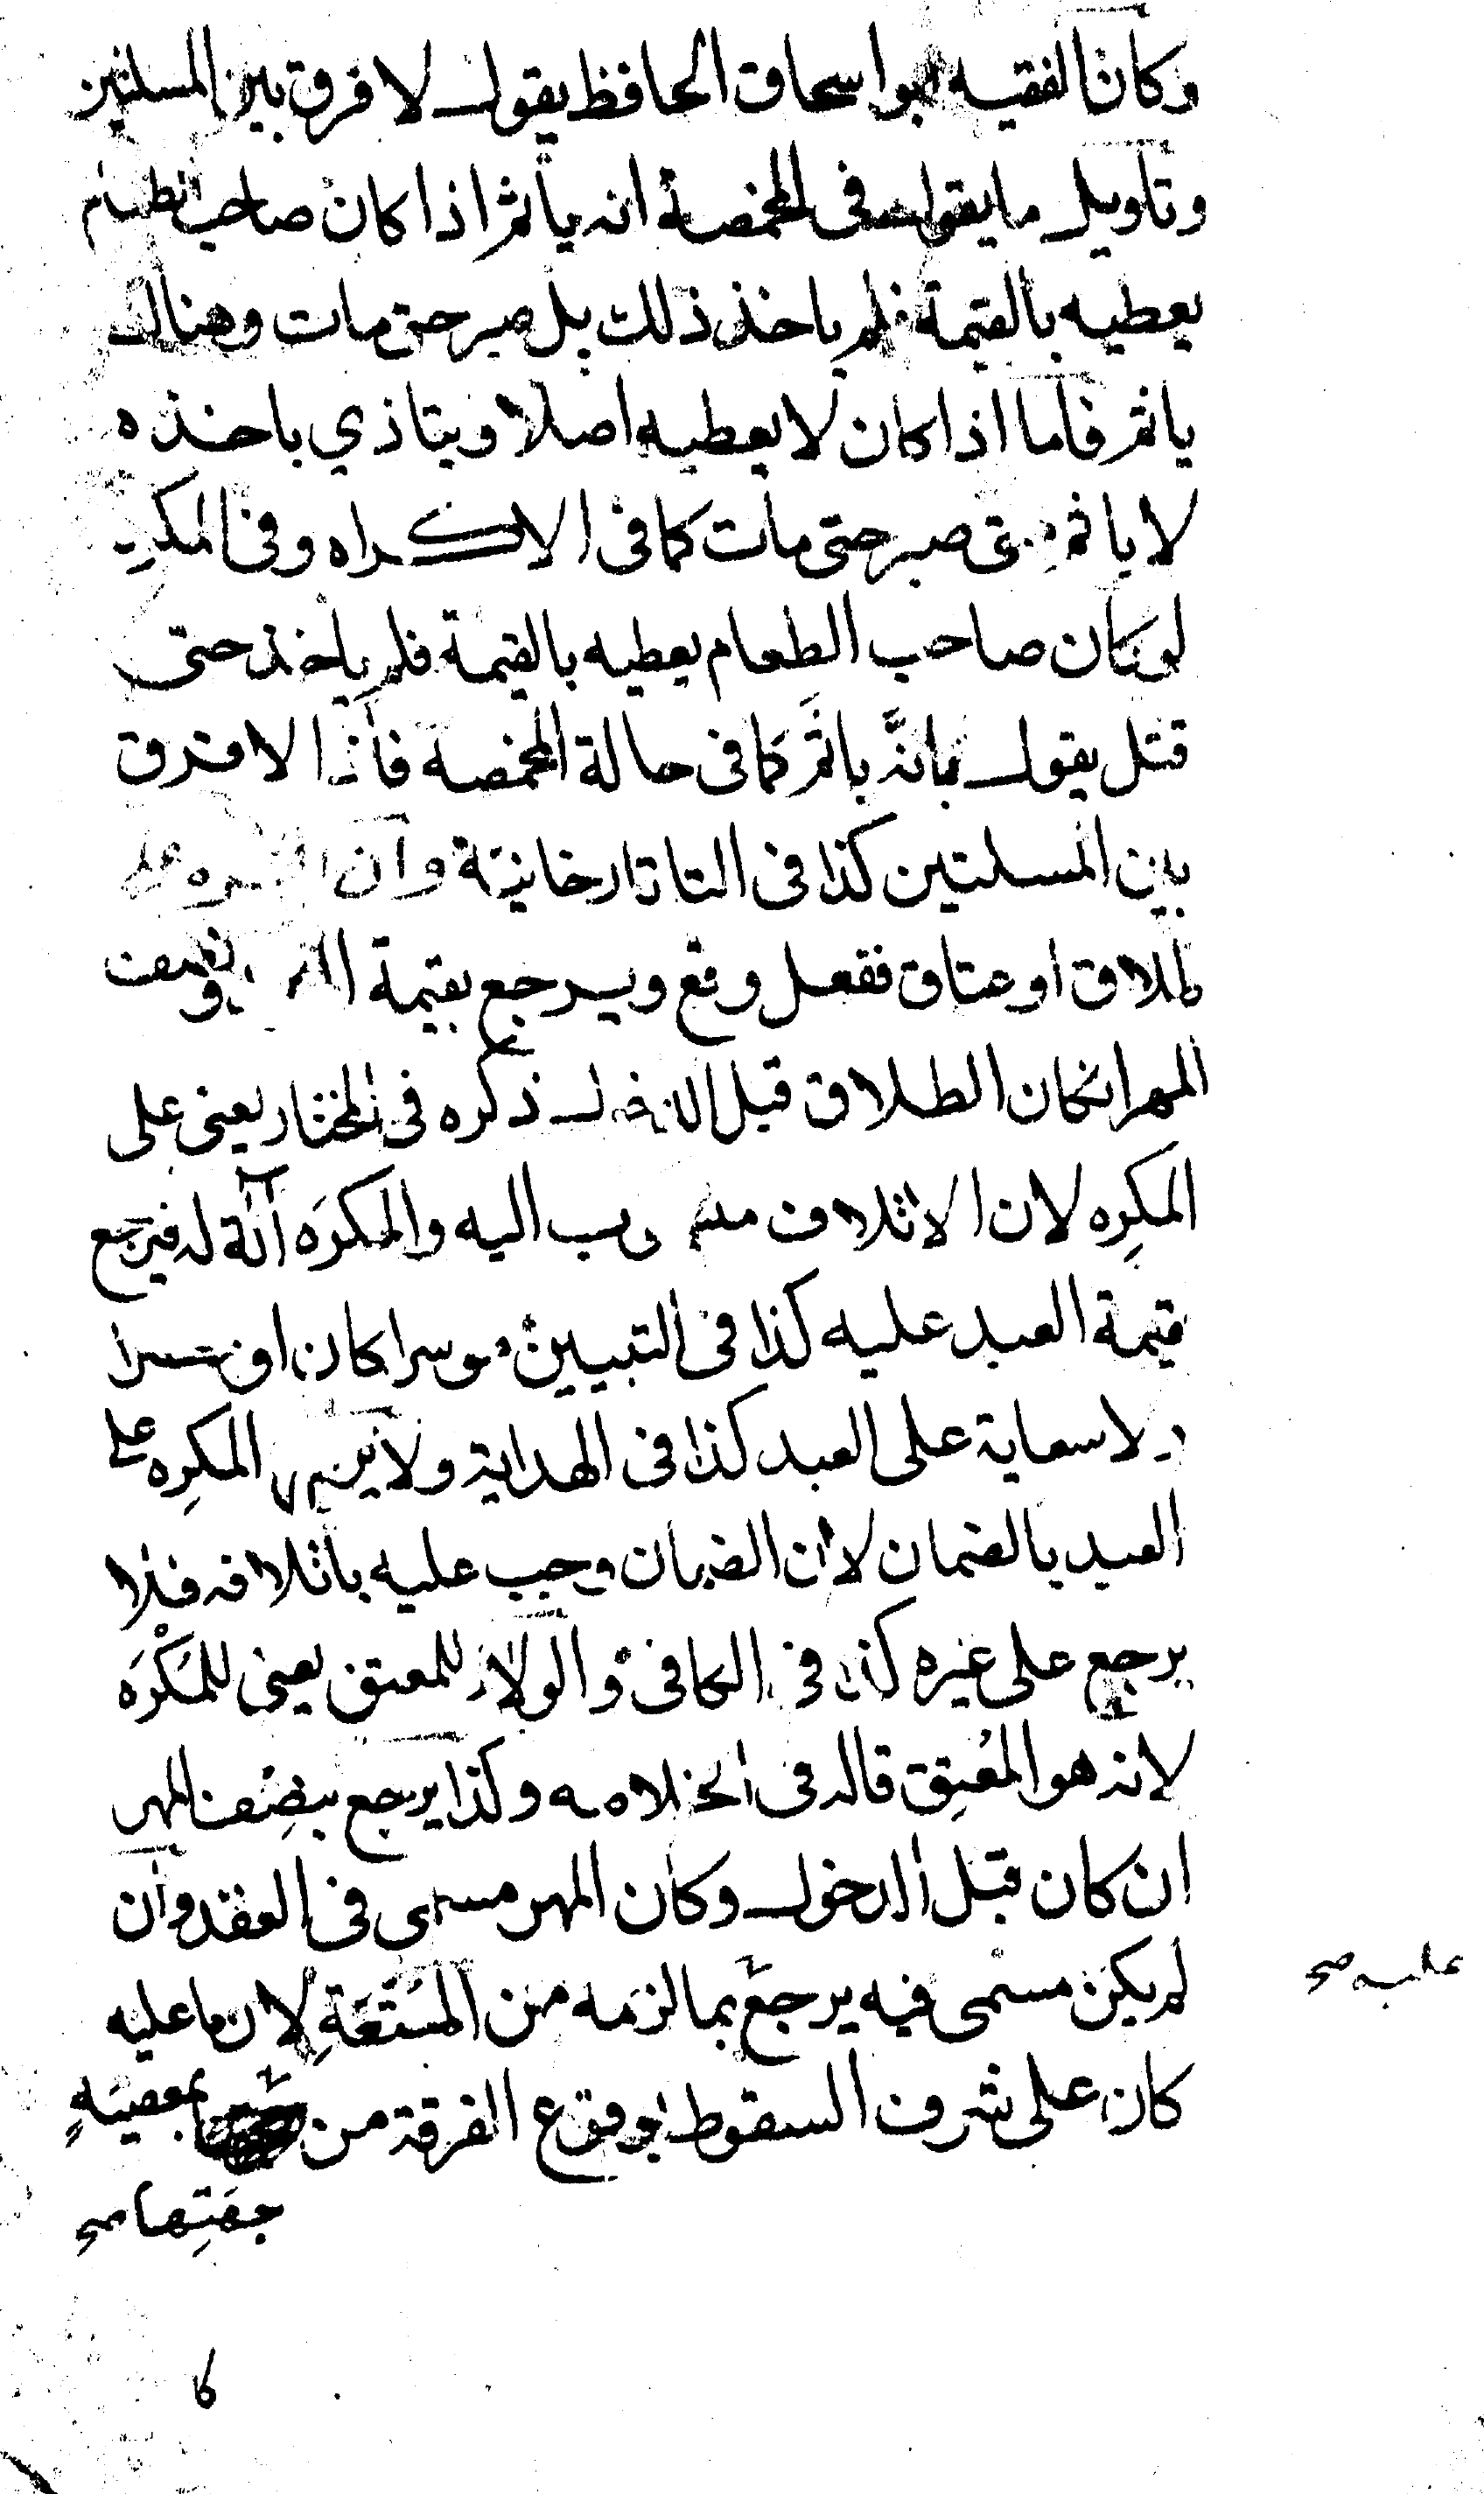 وكان الفقيه ابو اسحاق الحافظ يقول لا فرق بين المسلتين
وتاويل ما يقول في المخمصة انه ياثم اذا كان صاحب الطعام
يعطيه بالقيمة فلم ياخذ ذلك بل صبر حتى مات وهناك
ياثم فاما اذا كان لا يعطيه اصلا ويتاذي باخذه
لا ياثم متى صبر حتى مات كما في الاكراه وفي المكره
لو كان صاحب الطعام يعطيه بالقيمة فلم ياخذ حتى
قتل يقول بانه ياثم كما في حالة المخمصه فاذا لا فرق
بين المسلتين كذا في التاتارخانية وان اكره على
طلاق او عتاق ففعل وقع ويرجع بقيمة ونصف
المهر ان كان الطلاق قبل الدخول ذكره في المختار يعني على
المكرِه لان الاتلاف منسوب اليه والمكرَه آلة له فيرجع
قيمة العبد عليه كذا في التبيين موسرا كان او معسرا
ولا سعاية على العبد كذا في الهداية ولا يرجع المكرِه على
العبد بالضمان لان الضمان وجب عليه باتلافه فلا
يرجع على غيره كذا في الكافي والولاء للمعتق يعني للمكْرَه
لانه هو المُعتِق قاله في الخلاصه وكذا يرجع بنصف المهر
ان كان قبل الدخول وكان المهر مسمى في العقد وان
لم يكن مسمى فيه يرجع بما لزمه من المتعَةِ لان ما عليه
عليه صح
كان على شرف السقوط بوقوع الفرقة من بمعصيةٍ
جهتِها صح